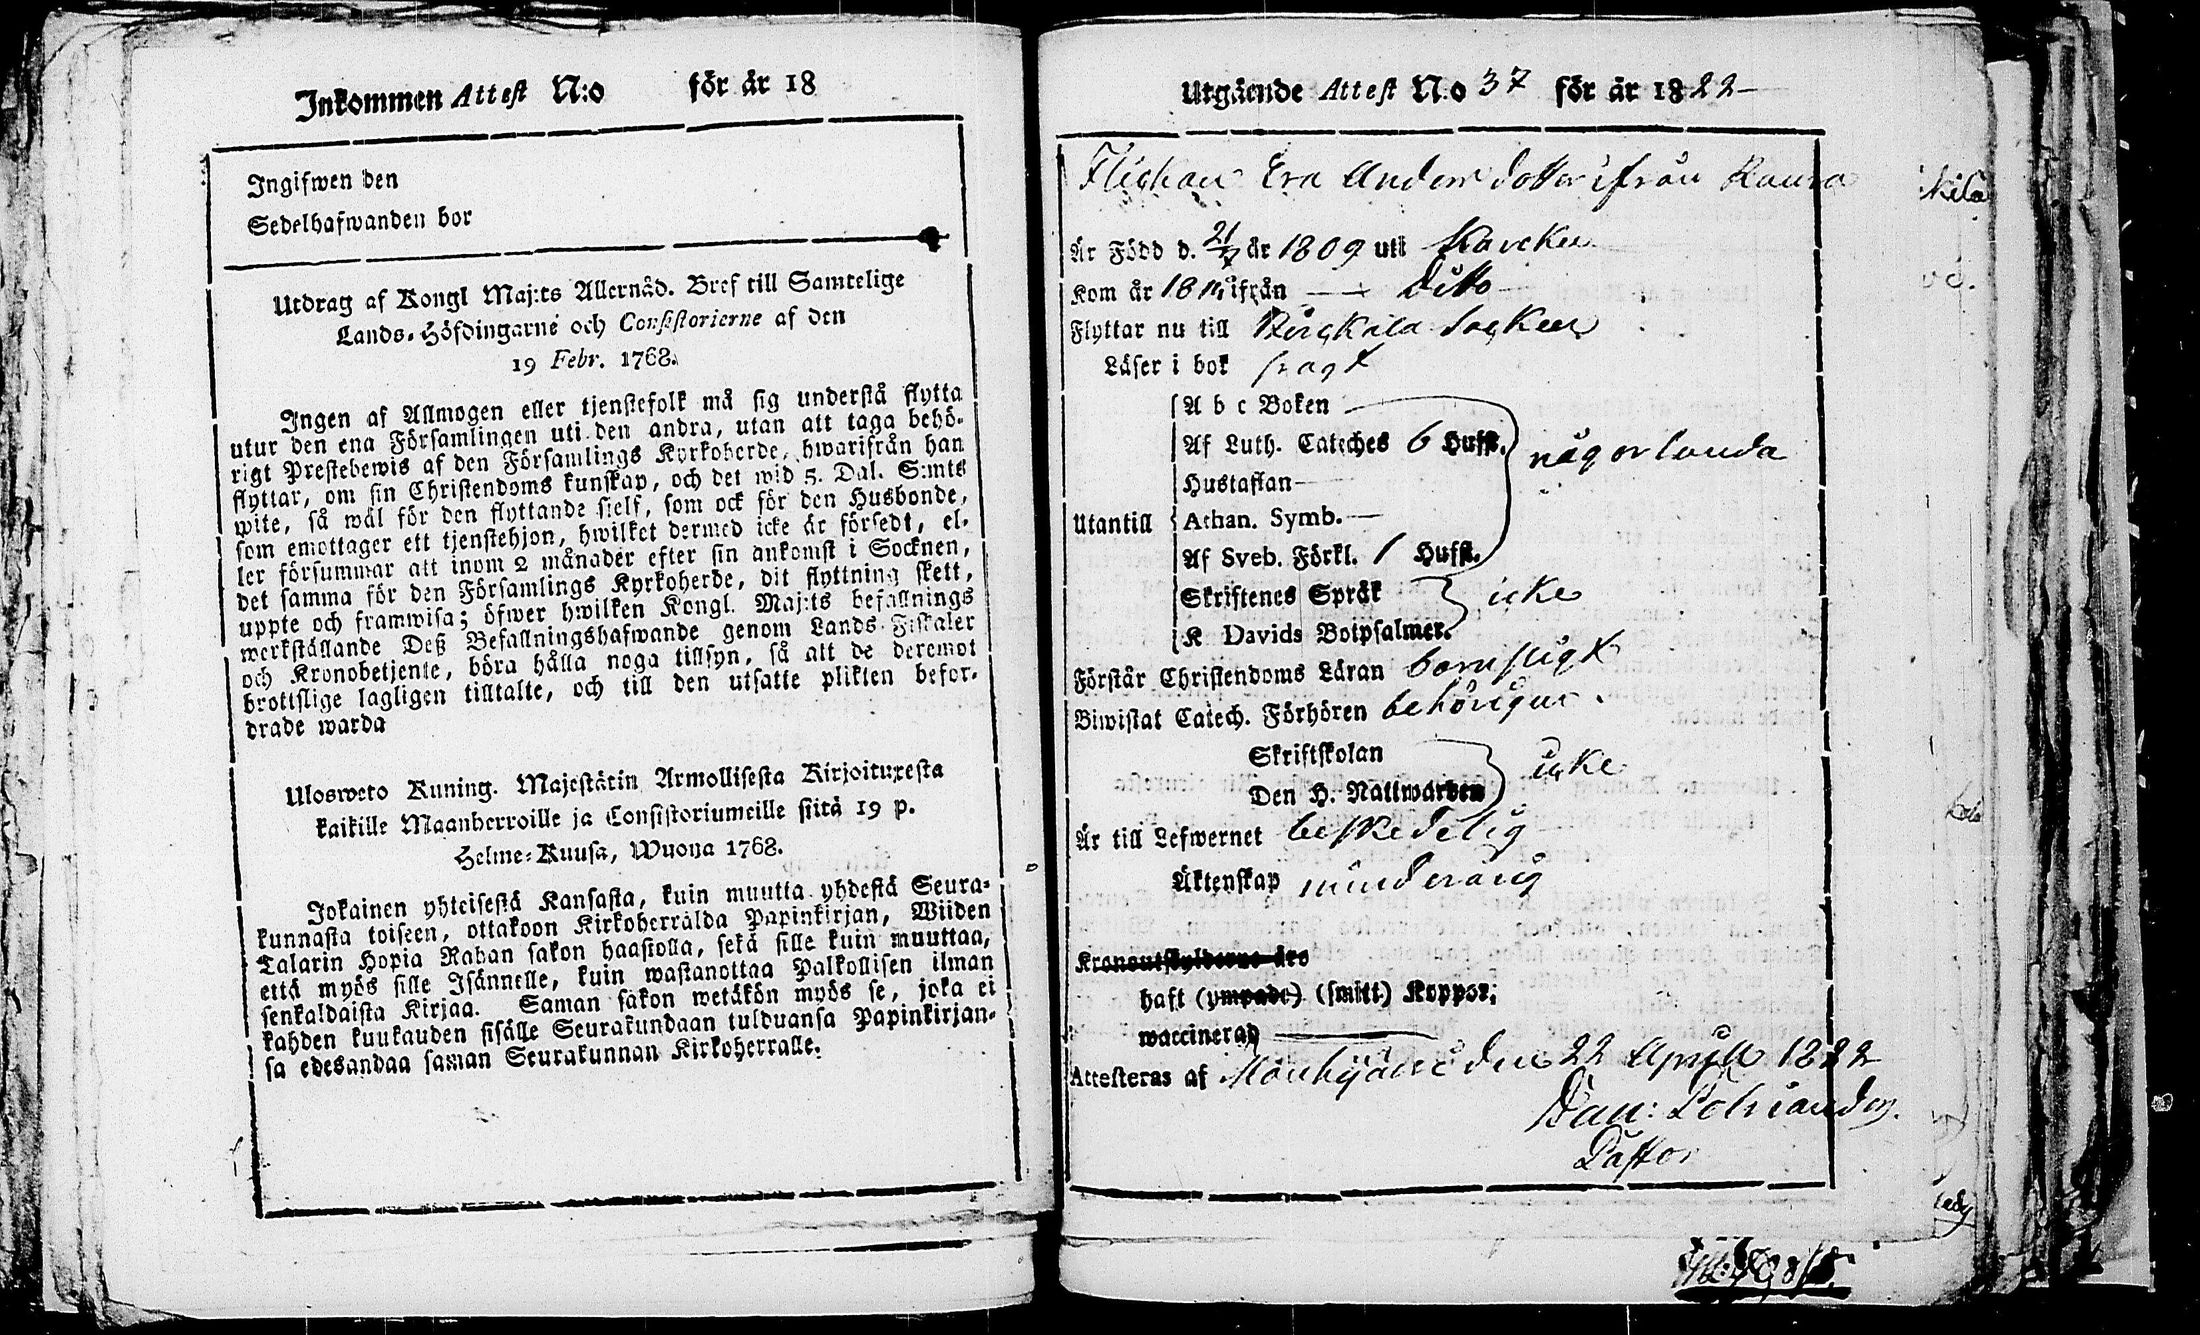 Inkommen Attest N:o för år 18
Ingifwen den
Sedelhafwanden bor
Utdrag af Kongl Maj:ts Allernåd. Bref till Samtelige
Lands-Höfdingarne och Consistorierne af den
19 Febr. 1768.
Ingen af Allmogen eller tjenstefolk må sig understå flytta
utur den ena Församlingen uti den andra, utan att taga behö-
rigt Prestebewis af den Församlings Kyrkoherde, hwarifrån han
flyttar, om sin Christendoms kunskap, och det wid 5. Dal. S:mts
wite, så wäl för den flyttande sielf, som ock för den Husbonde,
som emottager ett tjenstehjon, hwilket dermed icke är försedt, el-
ler försummar att inom 2 månader efter sin ankomst i Socknen,
det samma för den Församlings Kyrkoherde, dit flyttning skett,
uppte och framwisa; öfwer hwilken Kongl. Maj:ts befallnings
werkställande Deß Befallningshafwande genom Lands Fiskaler
och Kronobetjente, böra hålla noga tillsyn, så att de deremot
brottslige lagligen tilltalte, och till den utsatte plikten befor-
drade warda
Ulosweto Kuning. Majestätin Armollisesta Kirjoituxesta
kaikille Maanherroille ja Consistoriumeille siitä 19 p.
Helme-Kuusa, Wuona 1768.
Jokainen yhteisestä Kansasta, kuin muutta yhdestä Seura-
kunnasta toiseen, ottakoon Kirkoherralda Papinkirjan, Wiiden
Talarin Hopia Rahan sakon haastolla, sekä sille kuin muuttaa,
että myös sille Isännelle, kuin wastanottaa Palkollisen ilman
senkaldaista Kirjaa. Saman sakon wetäkön myös se, joka ei
kahden kuukauden sisälle Seurakundaan tulduansa Papinkirjan-
sa edesandaa saman Seurakunnan Kirkoherralle.
Utgående Attest N:o 37 för år 1822
Flickan Eva Anders dotter ifrån
Är Född d. 21/7 år 1809 uti
Kom år 18 ifrån Ditto
Flyttar nu till Birckala Socken
Läser i bok swagt
A b c Boken
Af Luth. Cateches 6 Hufst. någorlunda
Hustaflan
Utantill Athan. Symb.
Af Sveb. Förkl. 1 Hufst.
Skriftenes Språk icke
K Davids Botpsalmer.
Förstår Christendoms Läran barnsligt
Biwistat Catech. Förhören behörigen
Skriftskolan icke
Den H. Nattwarden
Är till Lefwernet beskedelig
Äktenskap minderårig
Kronoutskylderne äro
haft (ympade) (smitt) Koppor;
waccinerad
Attesteras af den 22 April 1822
Dan:
Pastor